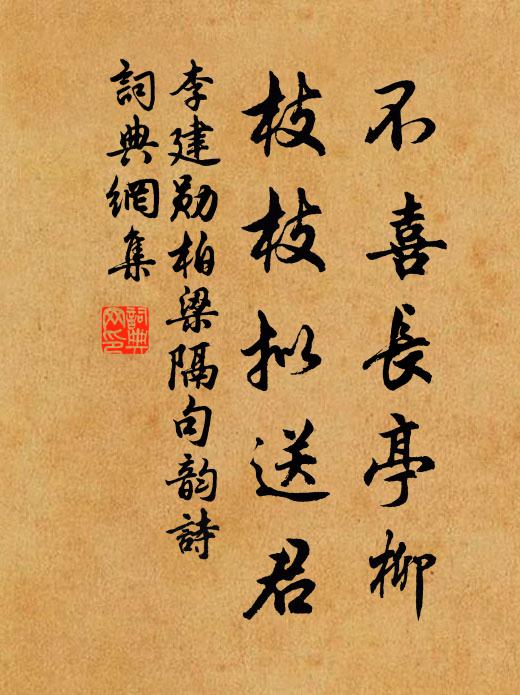 不喜長亭柳
枝枝拟送君
李建勋柏梁隔句韵詩
詞典網集
詞典网印